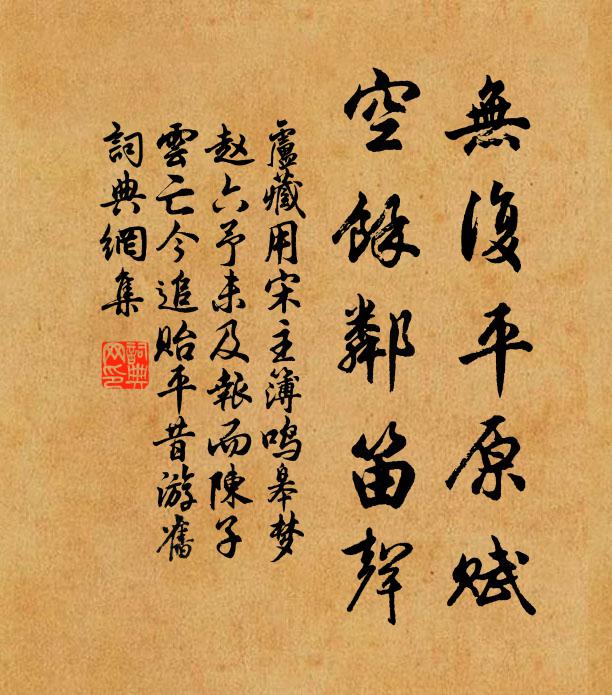 無復平原賦
空餘鄰笛聲
盧藏用宋主簿鸣皋梦
赵六予未及報而陳子
雲亡今追贻平昔游舊
詞典網集
詞典網印